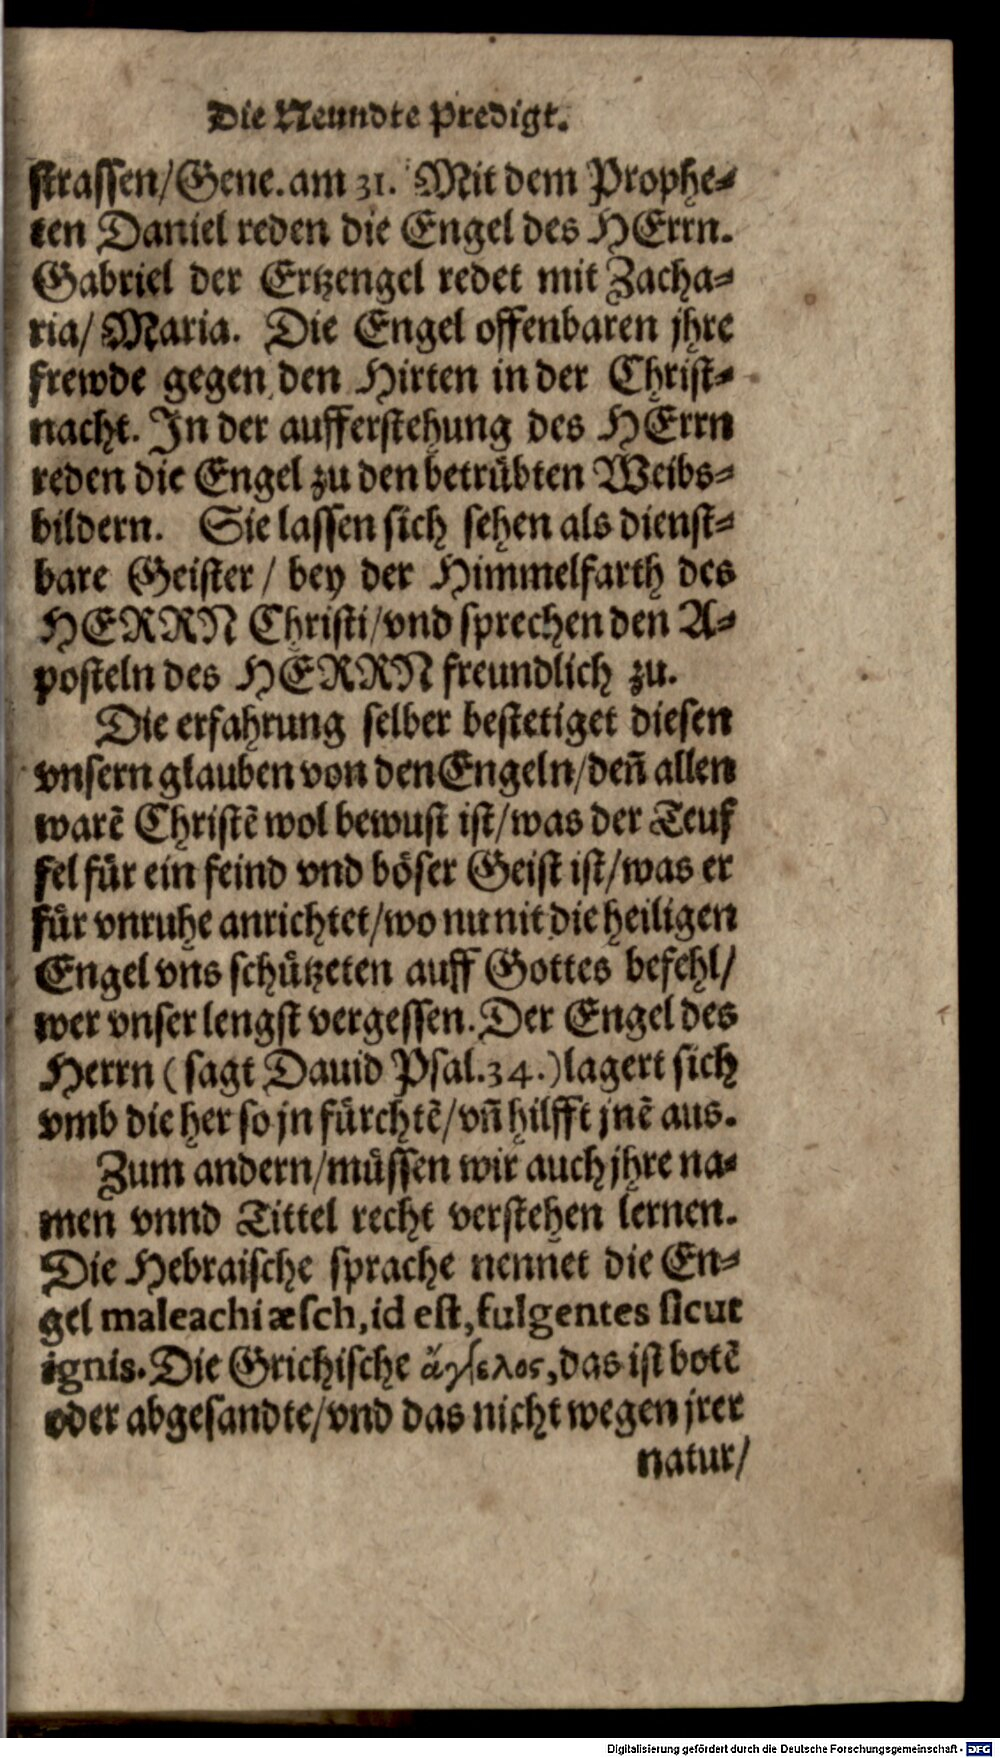 Die Neundte Predigt.
strassen/Gene. am 31. Mit dem Prophe-
ten Daniel reden die Engel des HErrn.
Gabriel der Ertzengel redet mit Zacha-
ria/ Maria. Die Engel offenbaren jhre
frewde gegen den Hirten in der Christ-
nacht. In der aufferstehung des HErrn
reden die Engel zu den betrübten Weibs-
bildern. Sie lassen sich sehen als dienst-
bare Geister / bey der Himmelfarth des
HERRN Christi/vnd sprechen den A-
posteln des HERRN freundlich zu.
Die erfahrung selber bestetiget diesen
vnsern glauben von den Engeln/deñ allen
warẽ Christẽ wol bewust ist/was der Teuf
fel für ein feind vnd böser Geist ist/was er
für vnruhe anrichtet/wo nu nit die heiligen
Engel vns schützeten auff Gottes befehl/
wer vnser lengst vergessen. Der Engel des
Herrn (sagt Dauid Psal.34.) lagert sich
vmb die her so jn fürchtẽ/vñ hilfft jnẽ aus.
Zum andern/müssen wir auch jhre na-
men vnnd Tittel recht verstehen lernen.
Die Hebraische sprache nennet die En-
gel maleachi æsch, id est, fulgentes sicut
ignis. Die Grichische ἄγγελος, das ist botẽ
oder abgesandte/vnd das nicht wegen jrer
natur/
Digitalisierung gefördert durch die Deutsche Forschungsgemeinschaft - DFG